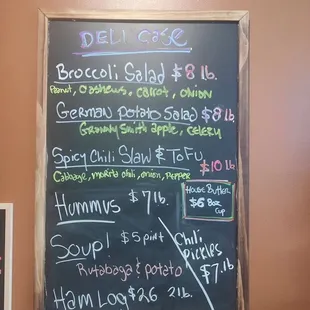 DELI CASE
Broccoli Salad $8 lb.
Peanut, Cashews, carrot, onion
German Potato Salad $8 lb.
Granny Smith apple, celery
Spicy Chili Slaw & Tofu $10 lb.
Cabbage, chili, onion, pepper
House Butter
$6 8oz
Cup
Hummus $7 lb.
Soup! $5 pint
Rutabaga & Potato
Chili
Pickles
$7 lb
Ham Log $26 2lb.